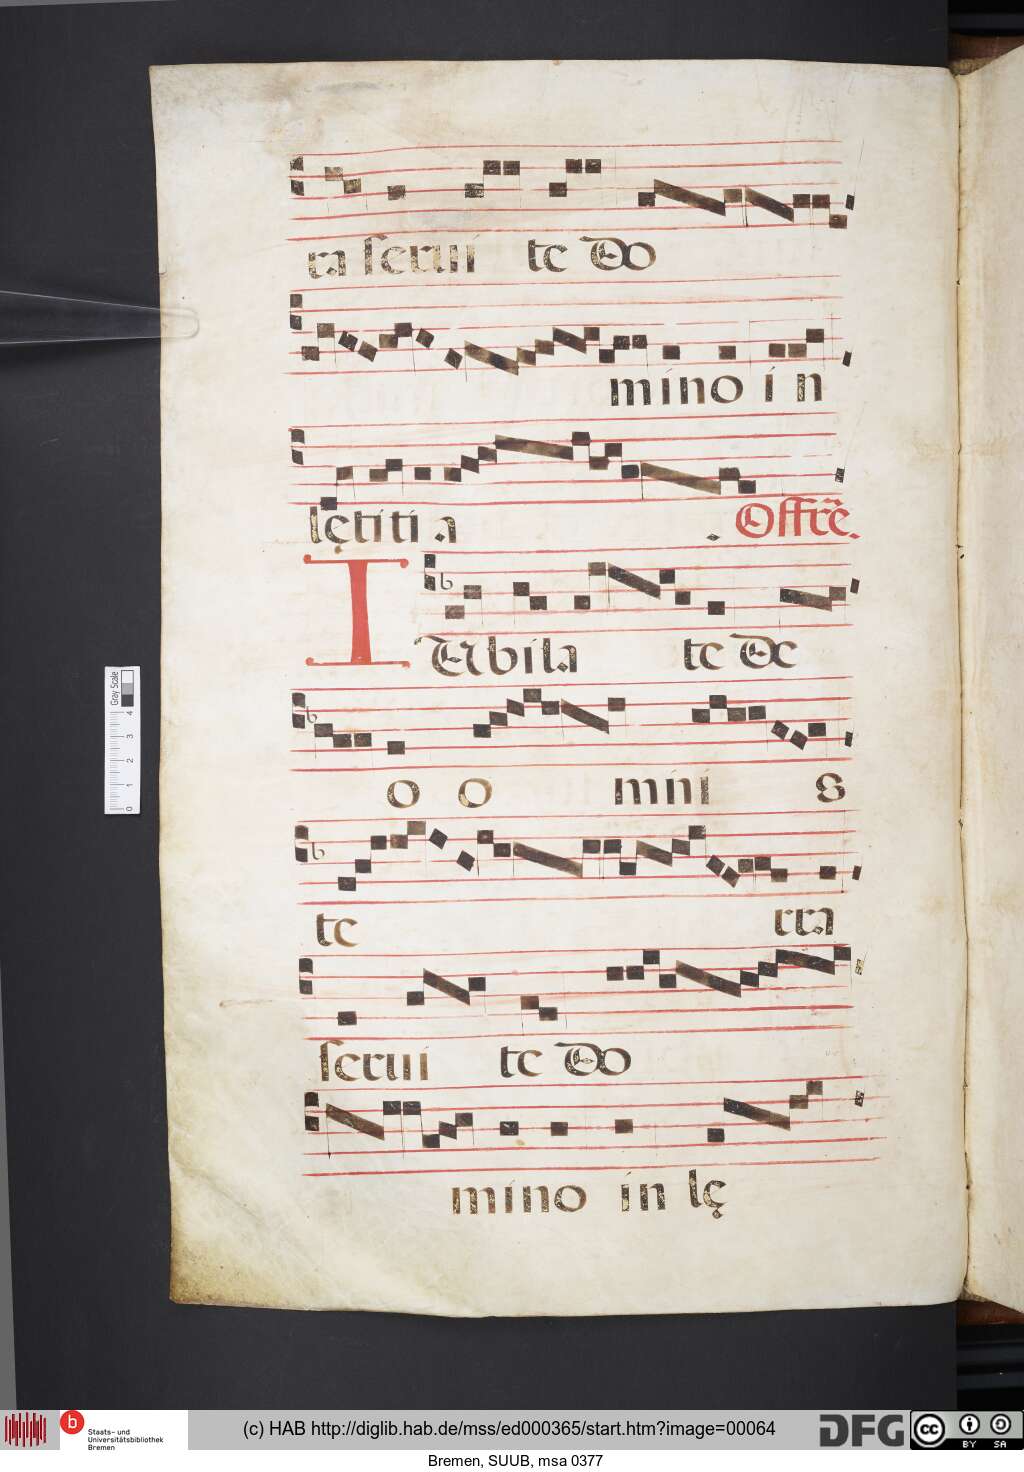 ra serui te Do
mino i n
lętiti a . Offrē.
IUbila te De
o o mni s
te rra
serui te Do
mino in lę
Gray Scale
0 1 2 3 4
b Staats- und
Universitätsbibliothek
Bremen
(c) HAB http://diglib.hab.de/mss/ed000365/start.htm?image=00064
DFG
cc BY SA
Bremen, SUUB, msa 0377